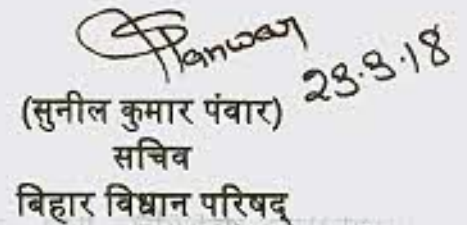 Panwar
23.3.18
(सुनील कुमार पंवार)
सचिव
बिहार विधान परिषद्